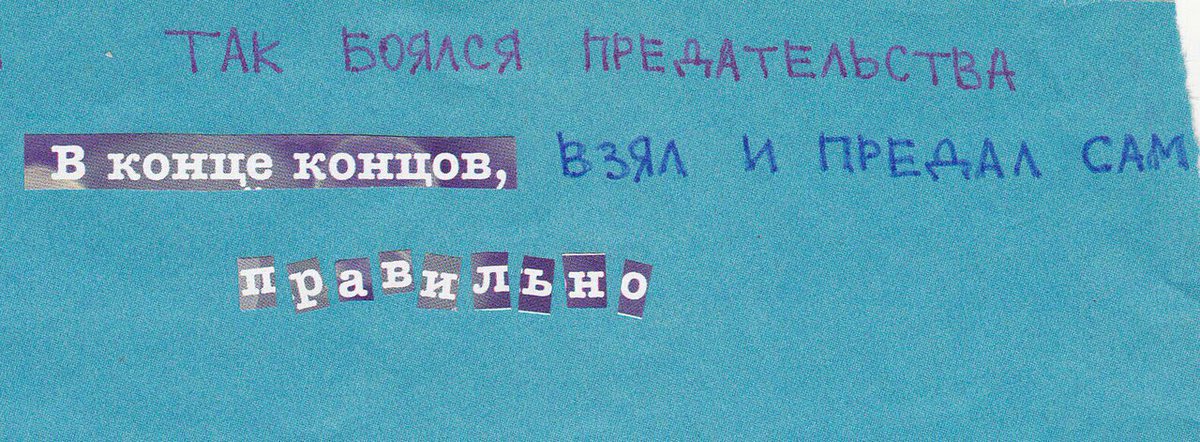 ТАК БОЯЛСЯ ПРЕДАТЕЛЬСТВА
В конце концов, ВЗЯЛ И ПРЕДАЛ САМ
правильно